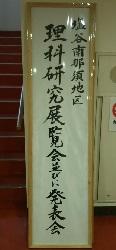 塩谷南那須地区
理科研究展覧会並びに発表会